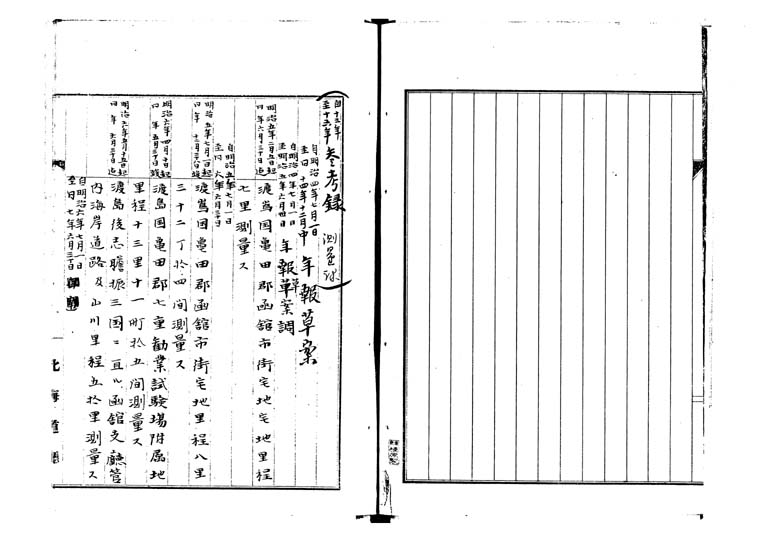 自十五年
至十六年 参考録 測量課
自明治四年七月一日
至同十四年十二月中 年報草案
自明治四年七月一日
至明治五年六月 年報草案調
明治五年二月五日起
同年六月三十日迄 渡島国亀田郡函舘市街宅地宅地里程
七里測量ス
自明治五年七月一日
至同六年六月三十日
明治五年七月一日起 渡島国亀田郡函舘市街宅地里程八里
三十二丁拾四間測量ス
明治六年四月十日起
同年五月三十日 渡島国亀田郡七重勧業試験場附属地
里程十三里十一町拾五間測量ス
渡島後志膽振三国ニ亘ル函舘支廳管
内海岸道路及山川里程五拾里測量ス
自明治六年七月一日
至同七年六月三十日
北海道